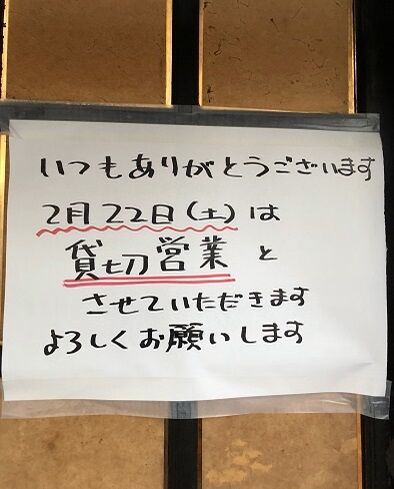 いつもありがとうございます
2月22日(土)は
貸切営業と
させていただきます
よろしくお願いします